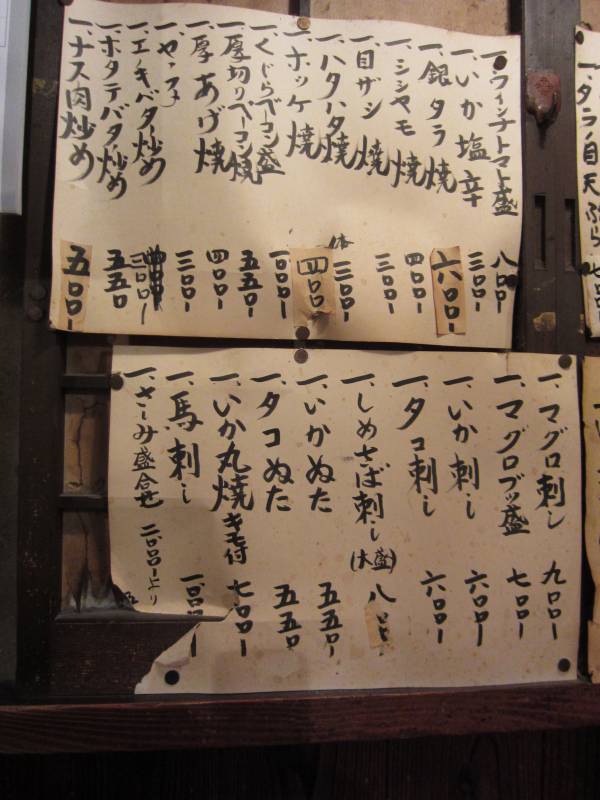 一、タラノ目天ぷら 七〇〇
一、ウィンナトマト盛 八〇〇-
一、いか塩辛 三〇〇-
一、銀タラ焼 六〇〇-
一、シシャモ焼 四〇〇-
一、目ザシ焼 三〇〇-
一、ハタハタ焼 三〇〇-
一、ホッケ焼 四〇〇-
一、くじらベーコン盛 一〇〇〇-
一、厚切りベーコン焼 五五〇-
一、厚あげ焼 四〇〇-
一、ヤッコ 三〇〇-
一、エノキバター炒め 三〇〇-
一、ホタテバター炒め 五五〇
一、ナス肉炒め 五〇〇-
一、マグロ刺し 九〇〇-
一、マグロブツ盛 七〇〇-
一、いか刺し 六〇〇-
一、タコ刺し 六〇〇-
一、しめさば刺し(大盛) 八〇〇-
一、いかぬた 五五〇-
一、タコぬた 五五〇
一、いか丸焼キモ付 七〇〇-
一、馬刺し 一〇〇〇-
一、さしみ盛合せ 二〇〇〇-より